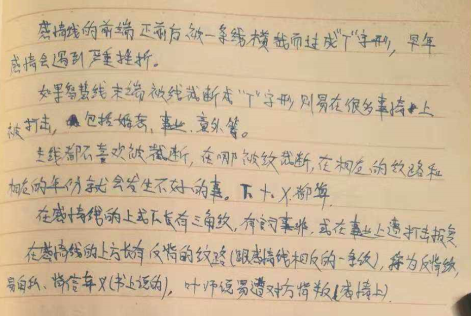 感情线的前端正前方被一条线横截而过成“丁”字形,早年
感情会遇到严重挫折。
如果智慧线末端被线截断成“丁”字形则易在很多事情上
被打击,包括婚姻、事业、意外等。
主线都不喜欢被截断,在哪被纹截断,在相应的纹路和
相应的年份就会发生不好的事。丁、十、X.都算
在感情线的上或下长有三角纹,有官司事非,或在事业上遭打击报复
在感情线的上方长有反情的纹路(跟感情线相反的一条纹),称为反情纹,
易自私、情信弃义(书上说的),叶师说易遭对方背叛(感情上)